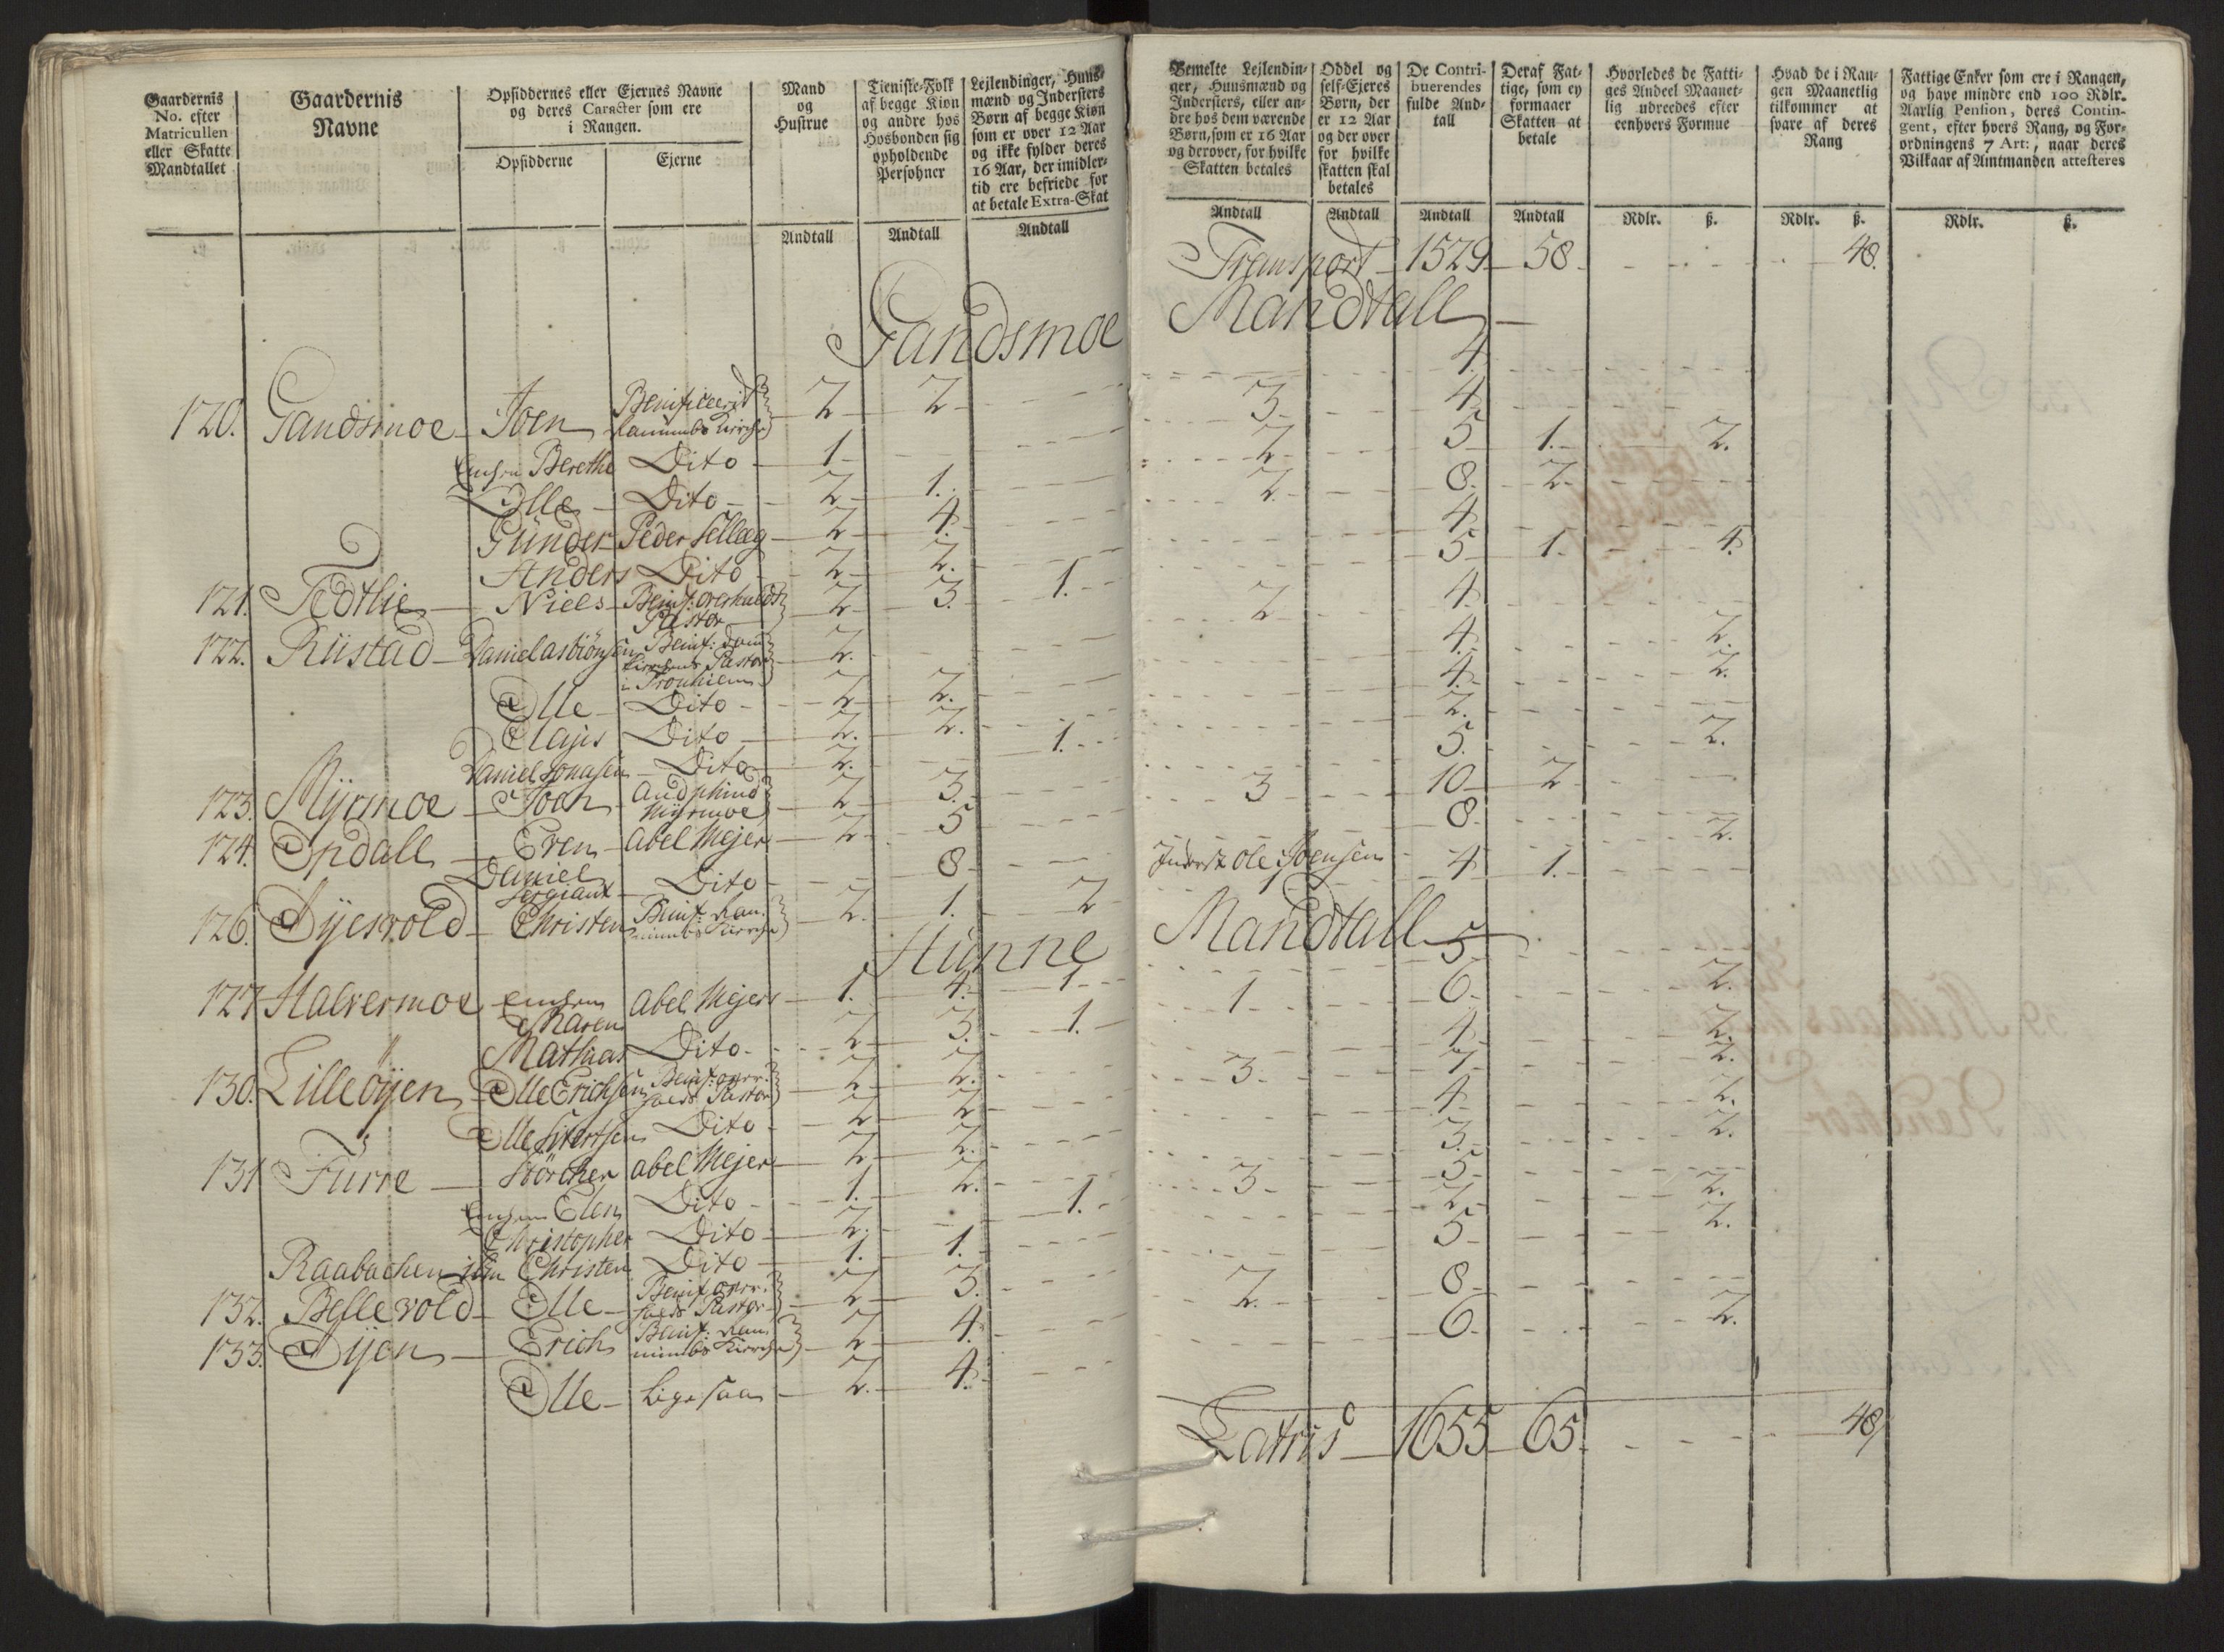 Gaardernis No. efter Matricullen eller Skatte Mandtallet
Gaardernis Navne
Opsiddernes eller Ejernes Navne og deres Caracter som ere i Rangen.
Opsidderne
Ejerne
Mand og Hustrue
Tieniste-Folk af begge Kiøn og andre hos Hosbonden sig opholdende Persohner
Lejlendinger, Huusmænd og Indersters Børn af begge Kiøn som er over 12 Aar og ikke fylder deres 16 Aar, der imidlertid ere befriede for at betale Extra-Skat
Andtall Andtall Andtall
Gandsmoe
120. Gandsmoe Joen Benificeerid 2 2
1
Berethe Dito
Olle Dito 2 1.
Gunder Peder Selleeg 2 4.
Anders Dito 2 2.
121. Tedtlie Niels Benif: 2 3. 1.
Pastor
122. Rustad Daniel Benif: 2.
Pastor
i Tronhiem
Olle Dito 2 2.
Clajis Dito 2. 2.
Daniel Jonasen Dito 2. 1.
123. Myrmoe Joen Audphind Myrmoe 2 3.
124. Opdall Even Abel Mejer 2. 5
Daniel Sergiant Dito 8
126. Øyesvold Christen Benif: 2. 1. 2
Hunne
127 Halvermoe Maren Abel Mejer 1. 4. 1
Mathias Dito 2 3. 1.
130. Lilleøyen Olle Erichsen Benif: Pastor 2 2.
Olle Sivertsen Dito 2 2
131 Furre Störcher Abel Mejer 2 2.
Elen Dito 1. 2.
Christopher Dito 2. 1.
Raabachen Christen Dito 1. 1.
132. Bellevold Olle Benif Pastor 2 3.
133. Øyen Erich Benif: 2 4.
Olle Ligesaa 2. 4.
Bemelte Lejlendinger, Huusmænd og Indersters, eller andre hos dem værende Børn, som er 16 Aar og derover, for hvilke Skatten betales
Oddel og self-Ejeres Børn, der er 12 Aar og der over for hvilke skatten skal betales
De Contribuerendes fulde Andtall
Deraf Fattige, som ey formaaer Skatten at betale
Hvorledes de Fattiges Andeel Maanetlig udreedes efter eenhvers Formue
Hvad de i Rangen Maanetlig tilkommer at svare af deres Rang
Fattige Enker som ere i Rangen, og have mindre end 100 Rdlr. Aarlig Pension, deres Contingent, efter hvers Rang, og Forordningens 7 Art:, naar deres Vilkaar af Amtmanden attesteres
Andtall Andtall Andtall Andtall Rdlr. ß. Rdlr. ß. Rdlr. ß.
Transport 1529 58 48.
Mandtall
4.
3. 4.
2. 5 1. 2.
2. 8. 2.
4.
5 1. 4.
2 4.
4. 2.
4. 2.
2.
5. 2.
3 10 2
8.
2.
Inderst Ole Joensen 4 1.
Mandtall
5
1 6. 2.
4 2.
3. 7 2.
4. 2.
3. 2.
3 5
2 2.
5 2.
2. 8
6. 2.
Latris 1655 65. 48